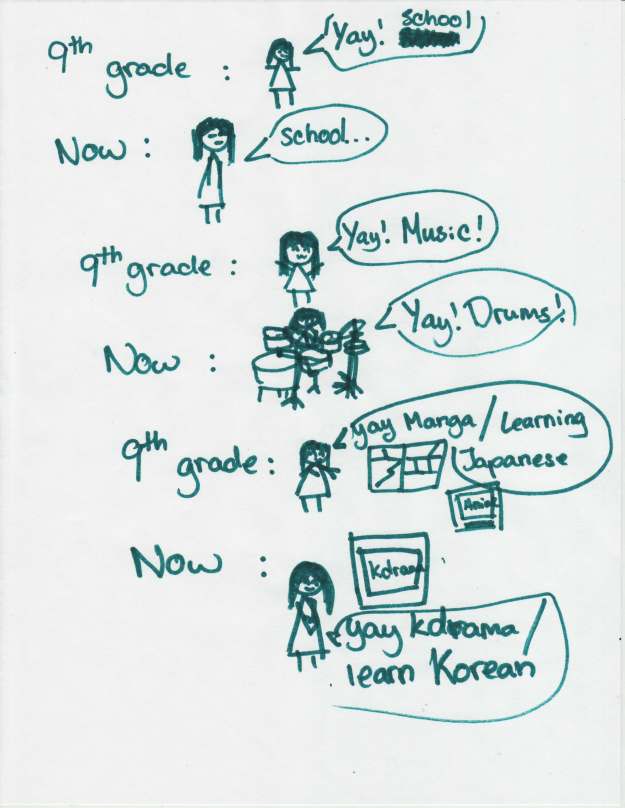 9th grade :
Yay! school
Now :
school...
9th grade :
Yay! Music!
Now :
Yay! Drums!
9th grade :
yay Manga / Learning
Japanese
Now :
Kdrama
yay kdrama /
learn Korean